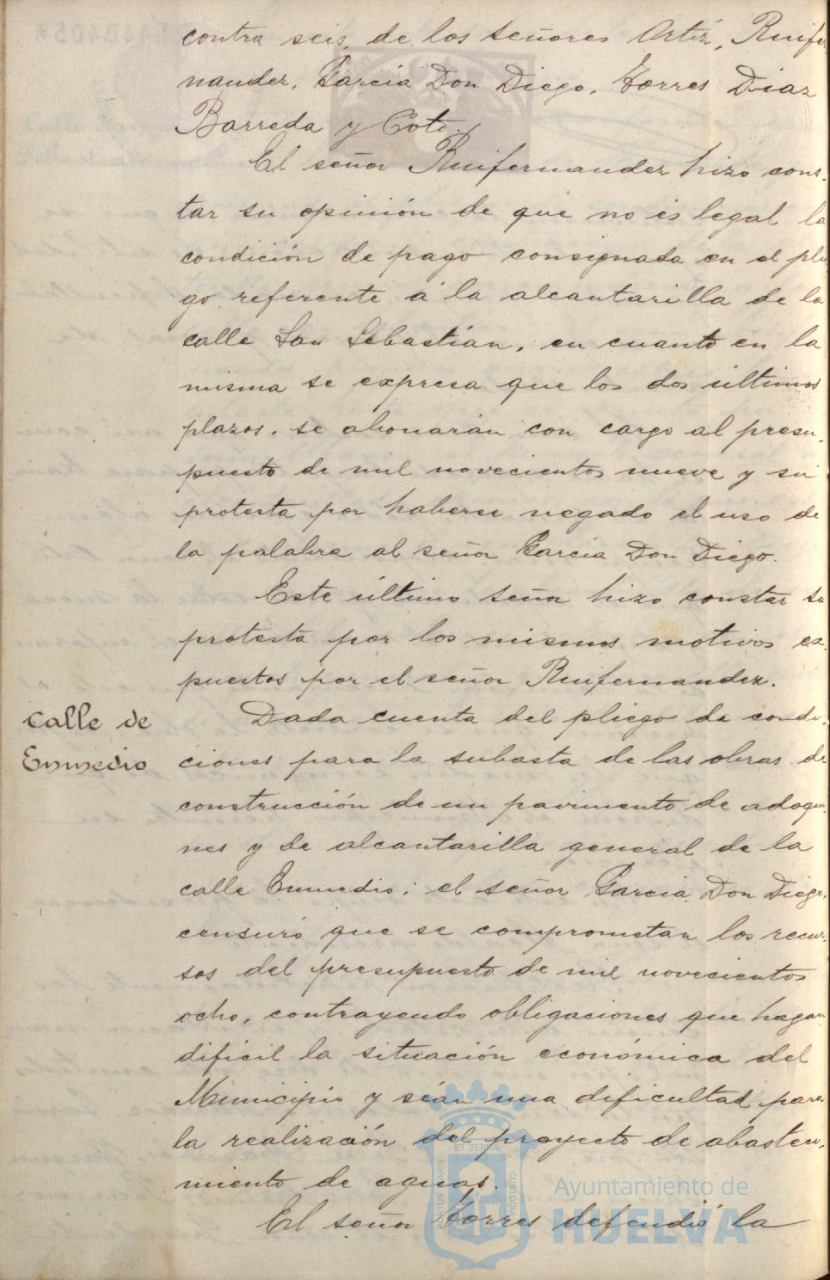 contra seis, de los señores Ortiz, Ruifer
nandez, Garcia Don Diego, Torres Diaz
Barreda y Coto.
El señor Ruifernandez hizo cons-
tar su opinión de que no es legal la
condición de pago consignada en el plie
go referente á la alcantarilla de la
calle San Sebastián, en cuanto en la
misma se expresa que los dos últimos
plazos, se abonarán con cargo al presu-
puesto de mil novecientos nueve y su
protesta por haberse negado el uso de
la palabra al señor Garcia Don Diego.
Este último señor hizo constar su
protesta por los mismos motivos ex-
puestos por el señor Ruifernandez.
Calle de
Enmedio
Dada cuenta del pliego de condi-
ciones para la subasta de las obras de
construcción de un pavimento de adoqui-
nes y de alcantarilla general de la
calle Enmedio; el señor Garcia Don Diego,
censuró que se comprometan los recur-
sos del presupuesto de mil novecientos
ocho, contrayendo obligaciones que hagan
dificil la situación económica del
Municipio y sean una dificultad para
la realización del proyecto de abasteci-
miento de aguas.
El señor Torres defendió la
Ayuntamiento de
HUELVA